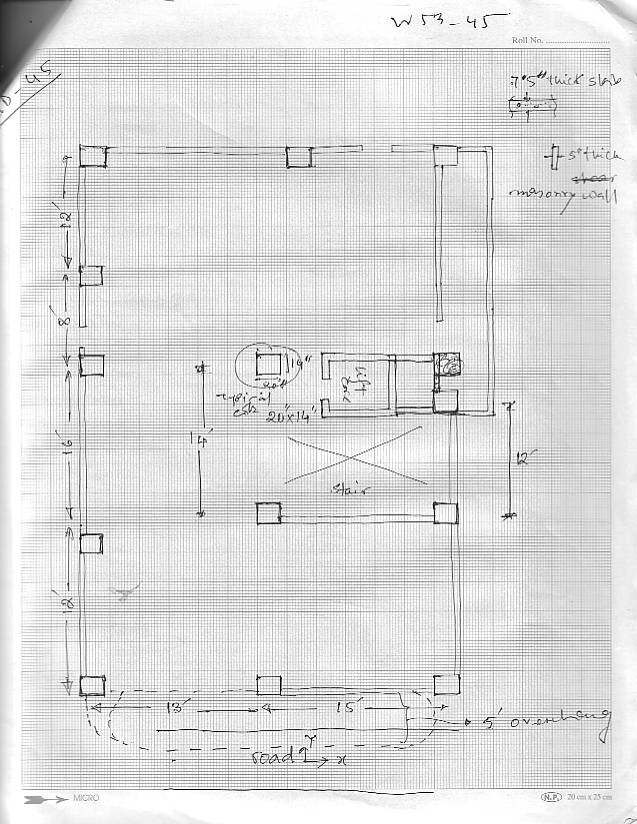 W53-45
Roll No.
D-45
7.5" thick slab
5" thick
shear
masonry wall
12'
8'
14"
20"
Lift
typical
col.
20"x14"
14'
16'
12'
stair
12'
13'
15'
5' overhang
road
Y
x
MICRO
N.P. 20 cm x 25 cm